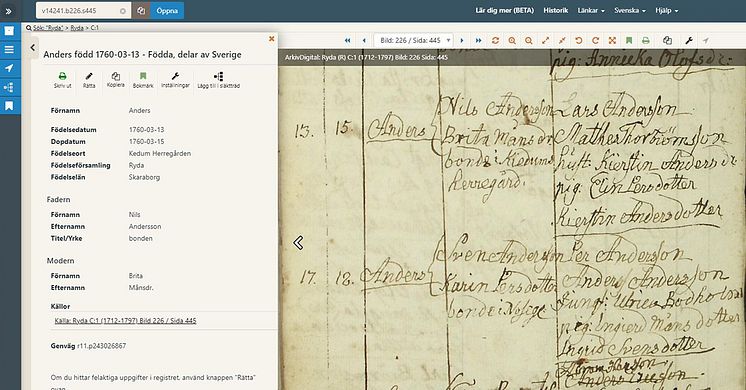 v14241.b226.s445
Öppna
Lär dig mer (BETA)
Historik
Länkar
Svenska
Hjälp
Sök: "Ryda" > Ryda > C:1
Anders född 1760-03-13 - Födda, delar av Sverige
Skriv ut
Rätta
Kopiera
Bokmärk
Inställningar
Lägg till i släktträd
Förnamn Anders
Födelsedatum 1760-03-13
Dopdatum 1760-03-15
Födelseort Kedum Herregården
Födelseförsamling Ryda
Födelselän Skaraborg
Fadern
Förnamn Nils
Efternamn Andersson
Titel/Yrke bonden
Modern
Förnamn Brita
Efternamn Månsdr.
Källor
Källa: Ryda C:1 (1712-1797) Bild 226 / Sida 445
Genväg r11.p243026867
Om du hittar felaktiga uppgifter i registret, använd knappen "Rätta"
ovan
Bild: 226 / Sida: 445
ArkivDigital: Ryda (R) C:1 (1712-1797) Bild: 226 Sida: 445
pig: Annicka Olofsdr:
13. 15. Anders
Nils Andersson
Brita Månsdr
bonde: Kiedums
herregård.
Lars Andersson
Mathes Thorbiörnsson
hust. Kierstin Andersdr
pig: Elin Persdotter
Kierstin Andersdotter
17. 18. Anders
Sven Andersson
Karin Persdotter
bonde i
Per Andersson
Anders Andersson
Jungf: Ulrica Bodholm
pig: Ingierd Månsdotter
Ingrid Svensdotter